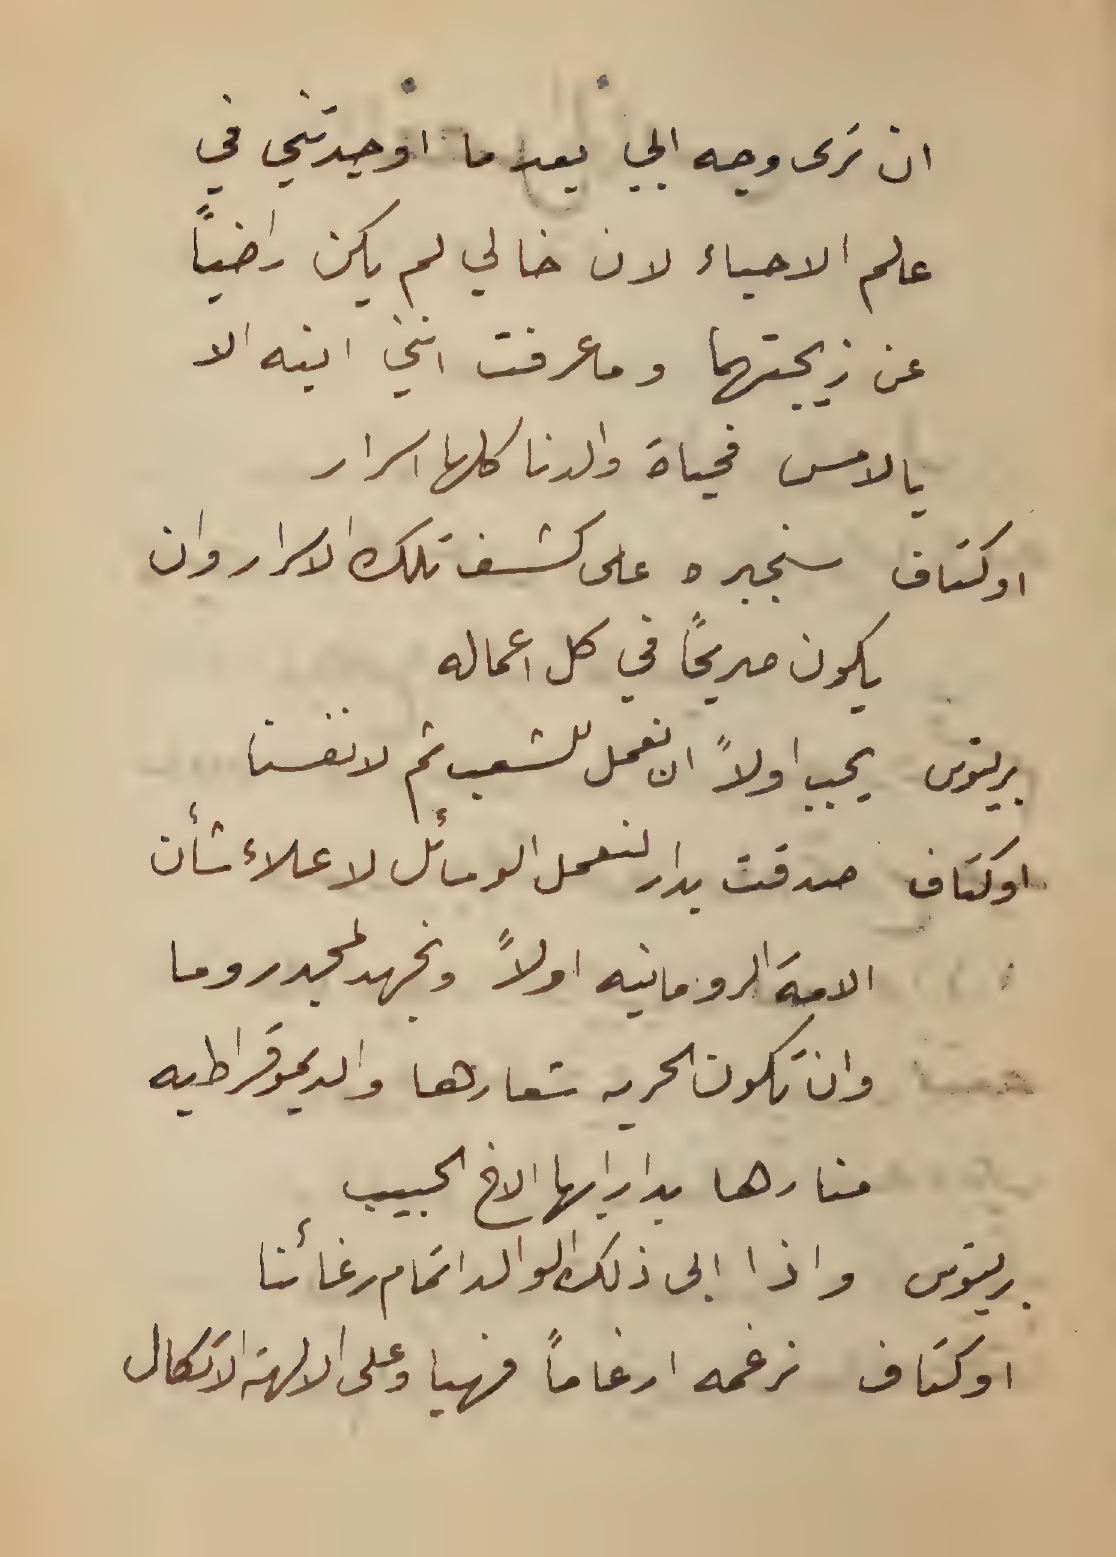 ان ترى وجه ابي بعد ما اوجدتني في
عالم الاحياء لان خالي لم يكن راضياً
عن زيجتهما وما عرفت انني ابنه الا
بالامس فحياة والدنا كلها اسرار
اوكتاف سنجبره على كشف تلك الاسرار وان
يكون صريحًا في كل اعماله
بريتوس يجب اولاً ان نعمل للشعب ثم لانفسنا
اوكتاف صدقت بدار لنعمل الوسائل لاعلاء شأن
الامة الرومانيه اولاً ونجهد لمجد روما
وان تكون الحريه شعارها والديموقراطيه
منارها بدار ايها الاخ الحبيب
بريتوس واذا ابى ذلك الوالد اتمام رغائبنا
اوكتاف نرغمه ارغاماً فهيا وعلى الالهة الاتكال